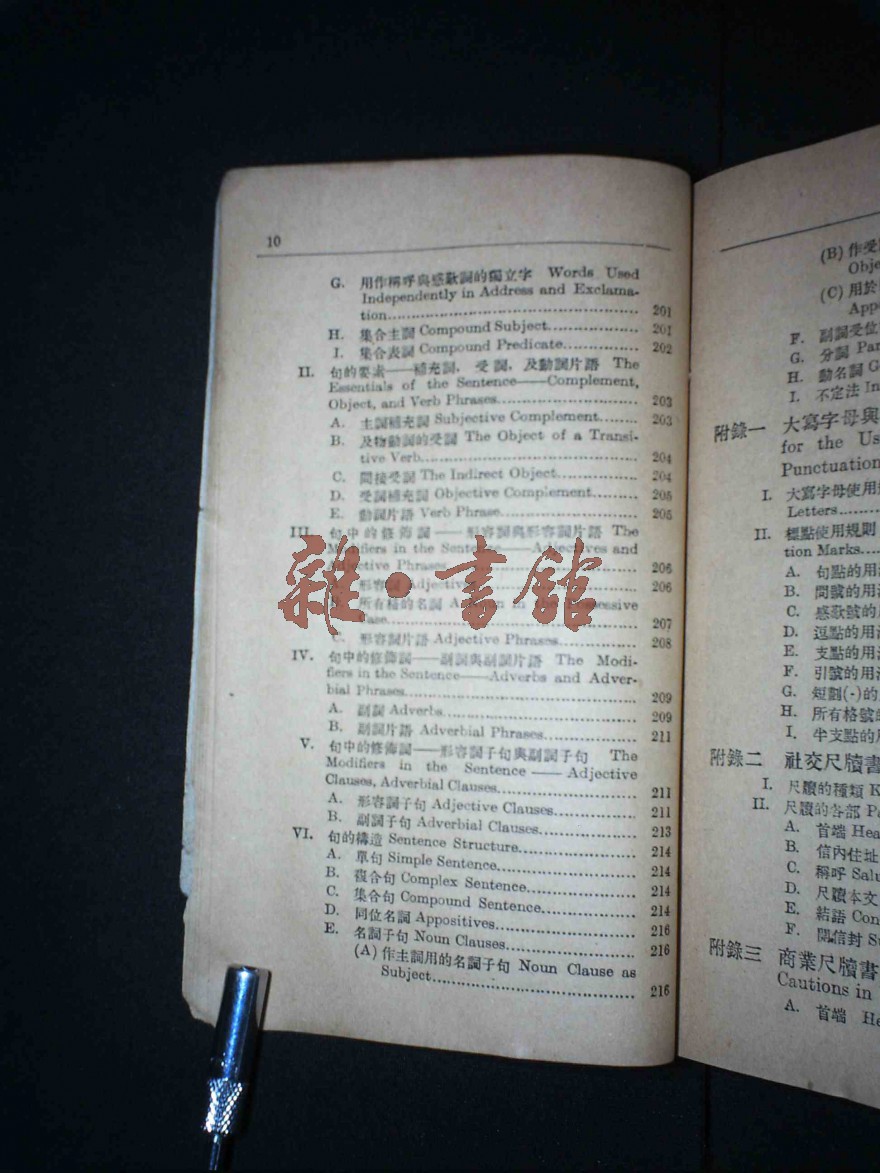 10
G. 用作稱呼與感歎詞的獨立字 Words Used
Independently in Address and Exclama-
tion........ 201
H. 集合主詞 Compound Subject........ 201
I. 集合表詞 Compound Predicate........ 202
II. 句的要素——補充詞, 受詞, 及動詞片語 The
Essentials of the Sentence——Complement,
Object, and Verb Phrases........ 203
A. 主詞補充詞 Subjective Complement........ 203
B. 及物動詞的受詞 The Object of a Transi-
tive Verb........ 204
C. 間接受詞 The Indirect Object........ 204
D. 受詞補充詞 Objective Complement........ 205
E. 動詞片語 Verb Phrase........ 205
III. 句中的修飾詞——形容詞與形容詞片語 The
Modifiers in the Sentence——Adjectives and
Adjective Phrases........ 206
A. 形容詞 Adjectives........ 206
B. 所有格的名詞 A in the Possessive
Case........ 207
C. 形容詞片語 Adjective Phrases........ 208
雜·書館
IV. 句中的修飾詞——副詞與副詞片語 The Modi-
fiers in the Sentence——Adverbs and Adver-
bial Phrases........ 209
A. 副詞 Adverbs........ 209
B. 副詞片語 Adverbial Phrases........ 211
V. 句中的修飾詞——形容詞子句與副詞子句 The
Modifiers in the Sentence——Adjective
Clauses, Adverbial Clauses........ 211
A. 形容詞子句 Adjective Clauses........ 211
B. 副詞子句 Adverbial Clauses........ 213
VI. 句的構造 Sentence Structure........ 214
A. 單句 Simple Sentence........ 214
B. 複合句 Complex Sentence........ 214
C. 集合句 Compound Sentence........ 214
D. 同位名詞 Appositives........ 216
E. 名詞子句 Noun Clauses........ 216
(A) 作主詞用的名詞子句 Noun Clause as
Subject........ 216
(B) 作受
Obje
(C) 用於
App
F. 副詞受位
G. 分詞 Par
H. 動名詞 G
I. 不定法 In
附錄一 大寫字母與
for the Us
Punctuation
I. 大寫字母使用
Letters........
II. 標點使用規則
tion Marks....
A. 句點的用
B. 問號的用
C. 感歎號的
D. 逗點的用
E. 支點的用
F. 引號的用
G. 短劃(-)的
H. 所有格號
I. 半支點的
附錄二 社交尺牘書
I. 尺牘的種類 K
II. 尺牘的各部 Pa
A. 首端 Hea
B. 信內住址
C. 稱呼 Salu
D. 尺牘本文
E. 結語 Con
F. 開信封 Su
附錄三 商業尺牘書
Cautions in
A. 首端 He